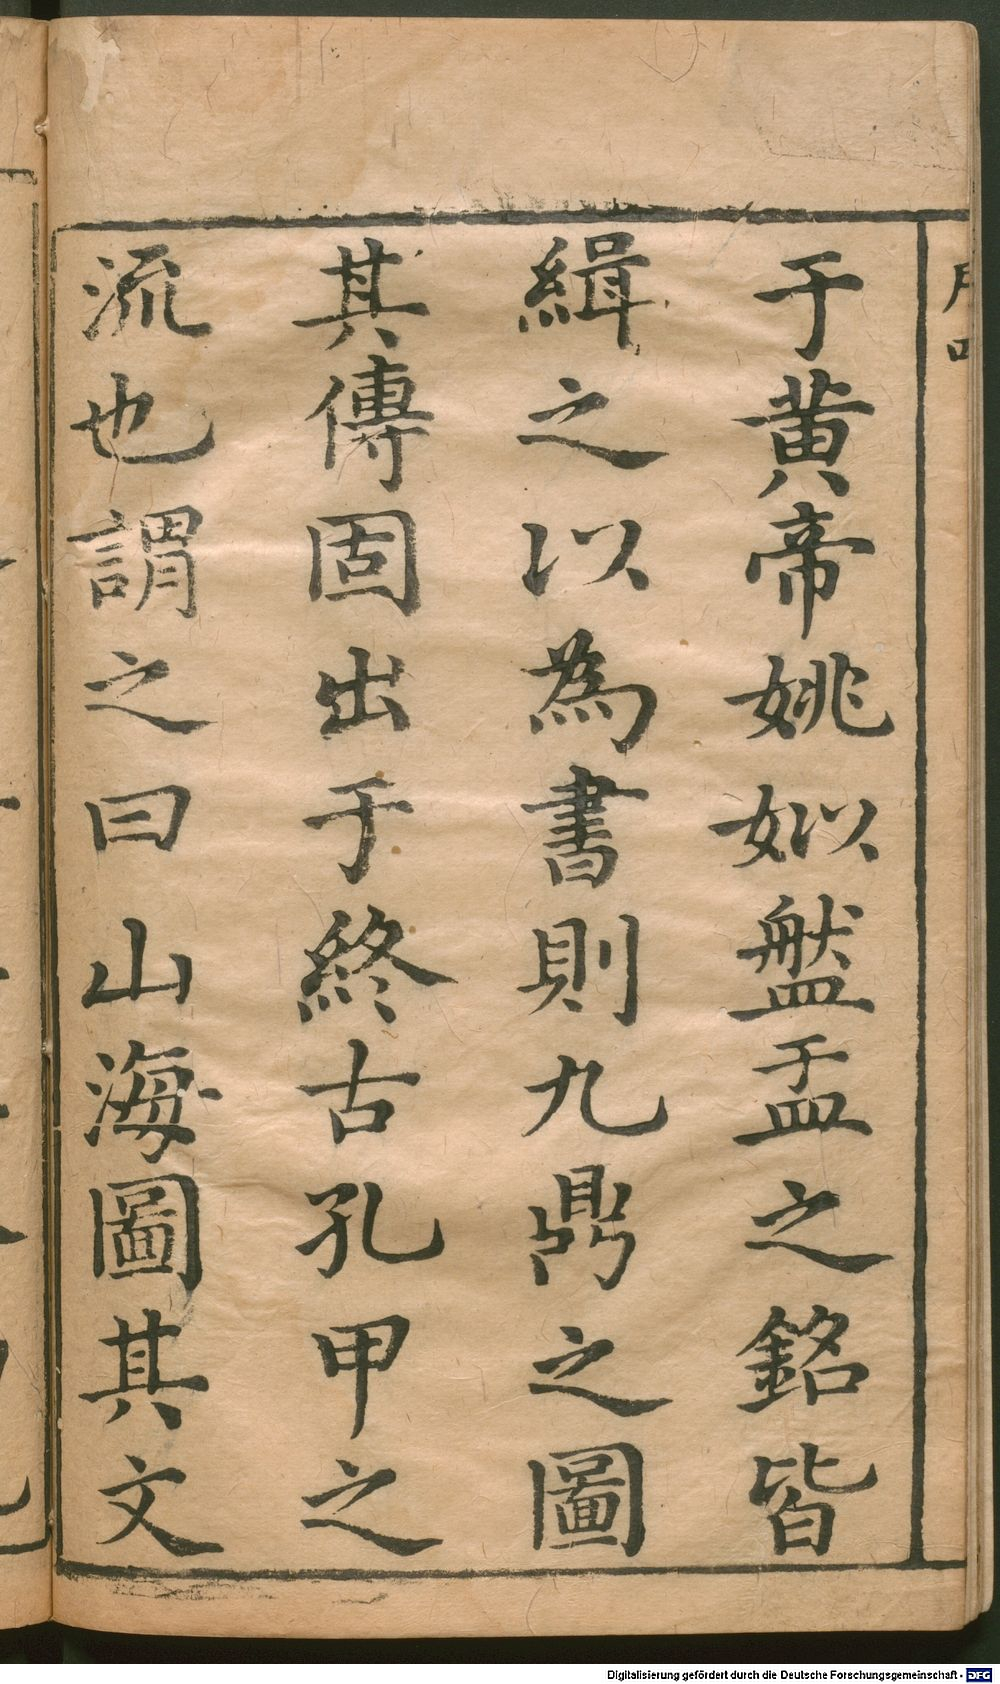 于黄帝姚姒盤盂之銘皆
緝之以為書則九鼎之圖
其傳固出于終古孔甲之
流也謂之曰山海圖其文
Digitalisierung gefördert durch die Deutsche Forschungsgemeinschaft - DFG